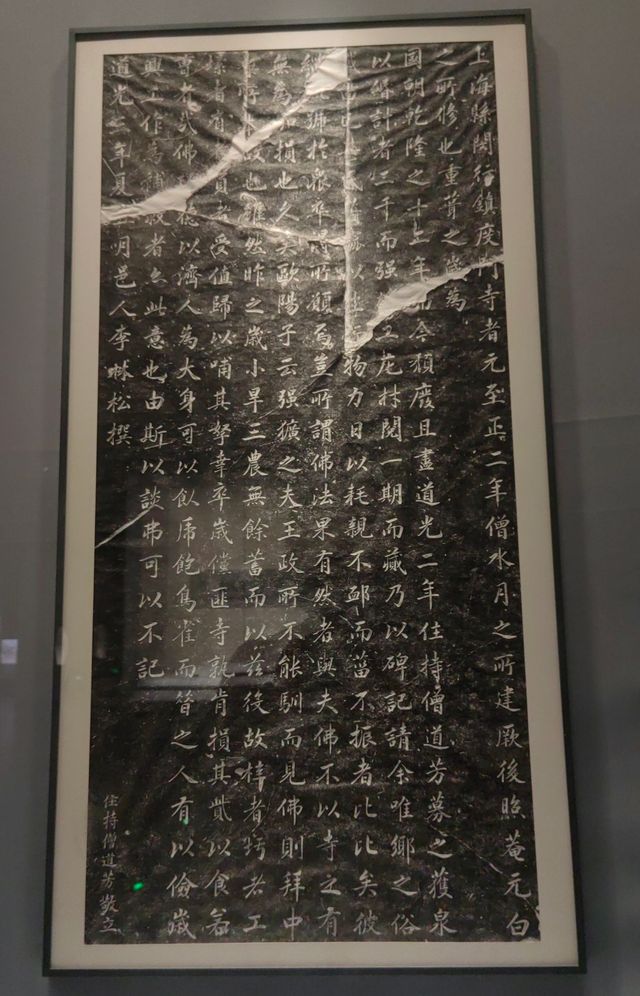 上海縣閔行鎮度門寺者元至正二年僧水月之所建厥後照菴元白
之所修也重葺之為
國朝乾隆之十七年令頹廢且盡道光二年住持僧道芳募之獲泉
以緡計者二千而强工庀材閱一期而藏乃以碑記請余唯鄉之俗
以物力日以耗親不卹而葘不振者比比矣彼
於衆卒得所願焉豈所謂佛法果有然者與夫佛不以寺之有
無為損也久矣歐陽子云强獷之夫王政所不能馴而見佛則拜中
故也雖然昨之歲小旱三農無餘蓄而以茲役故梓者圬者工
者受值歸以哺其孥幸卒歲僅匪寺孰肯損其貲以食若
佛以濟人為大身可以飤虎飽鳥雀而簪之人有以儉歲
興工作為者亦此意也由斯以談弗可以不記
道光二年夏明邑人李林松撰
住持僧道芳敬立